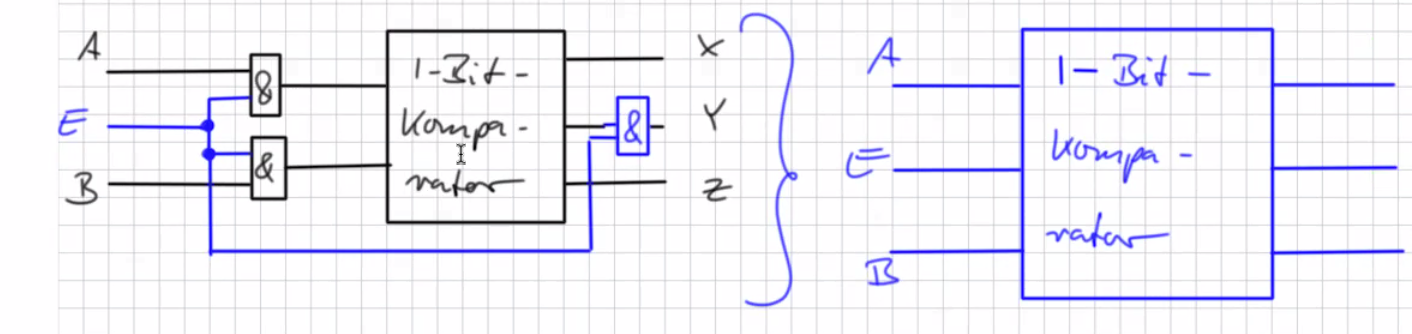 A
E
B
&
&
1-Bit-
Kompa-
rator
&
X
Y
Z
A
E
B
1-Bit-
Kompa-
rator